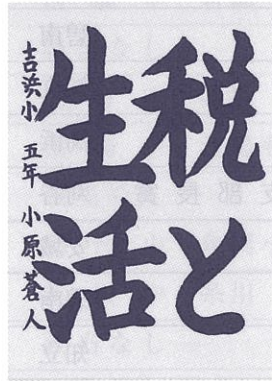 税と
生活
吉浜小 五年 小原蒼人